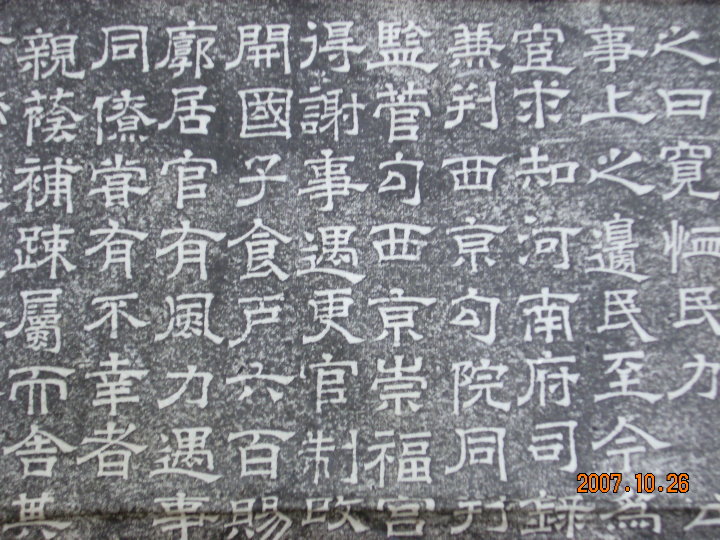 之曰寬恤民力
事上之邊民至今為
宦求知河南府司録
兼判西京句院同判
監菅句西京崇福宮
得謝事遇更官制改
開國子食戶六百賜
廓居官有風力遇事
同僚甞有不幸者
親蔭補疎屬而舍其
2007.10.26